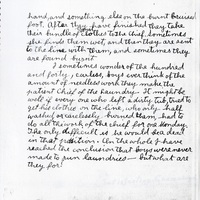 hand, and something else on the burnt bruised
foot. After they have finished they take
their bundle of clothes to the chief, sometimes
she finds them wet, and then they are sent
to the line with them, and sometimes they
are found burnt.
I sometimes wonder if the hundred
and forty, careless, boys ever think of the
amount of needless work they make the
patient chief of the laundry. It might be
well if every one who left a dirty tub, tried to
get his clothes on the line, who only half
washed or carelessly burned them, had to
do all the work of the chief for one Monday.
The only difficulty is he would be a dent
in that position. On the whole I have
reached the conclusion that boys were never
made to run laundries — but what are
they for!